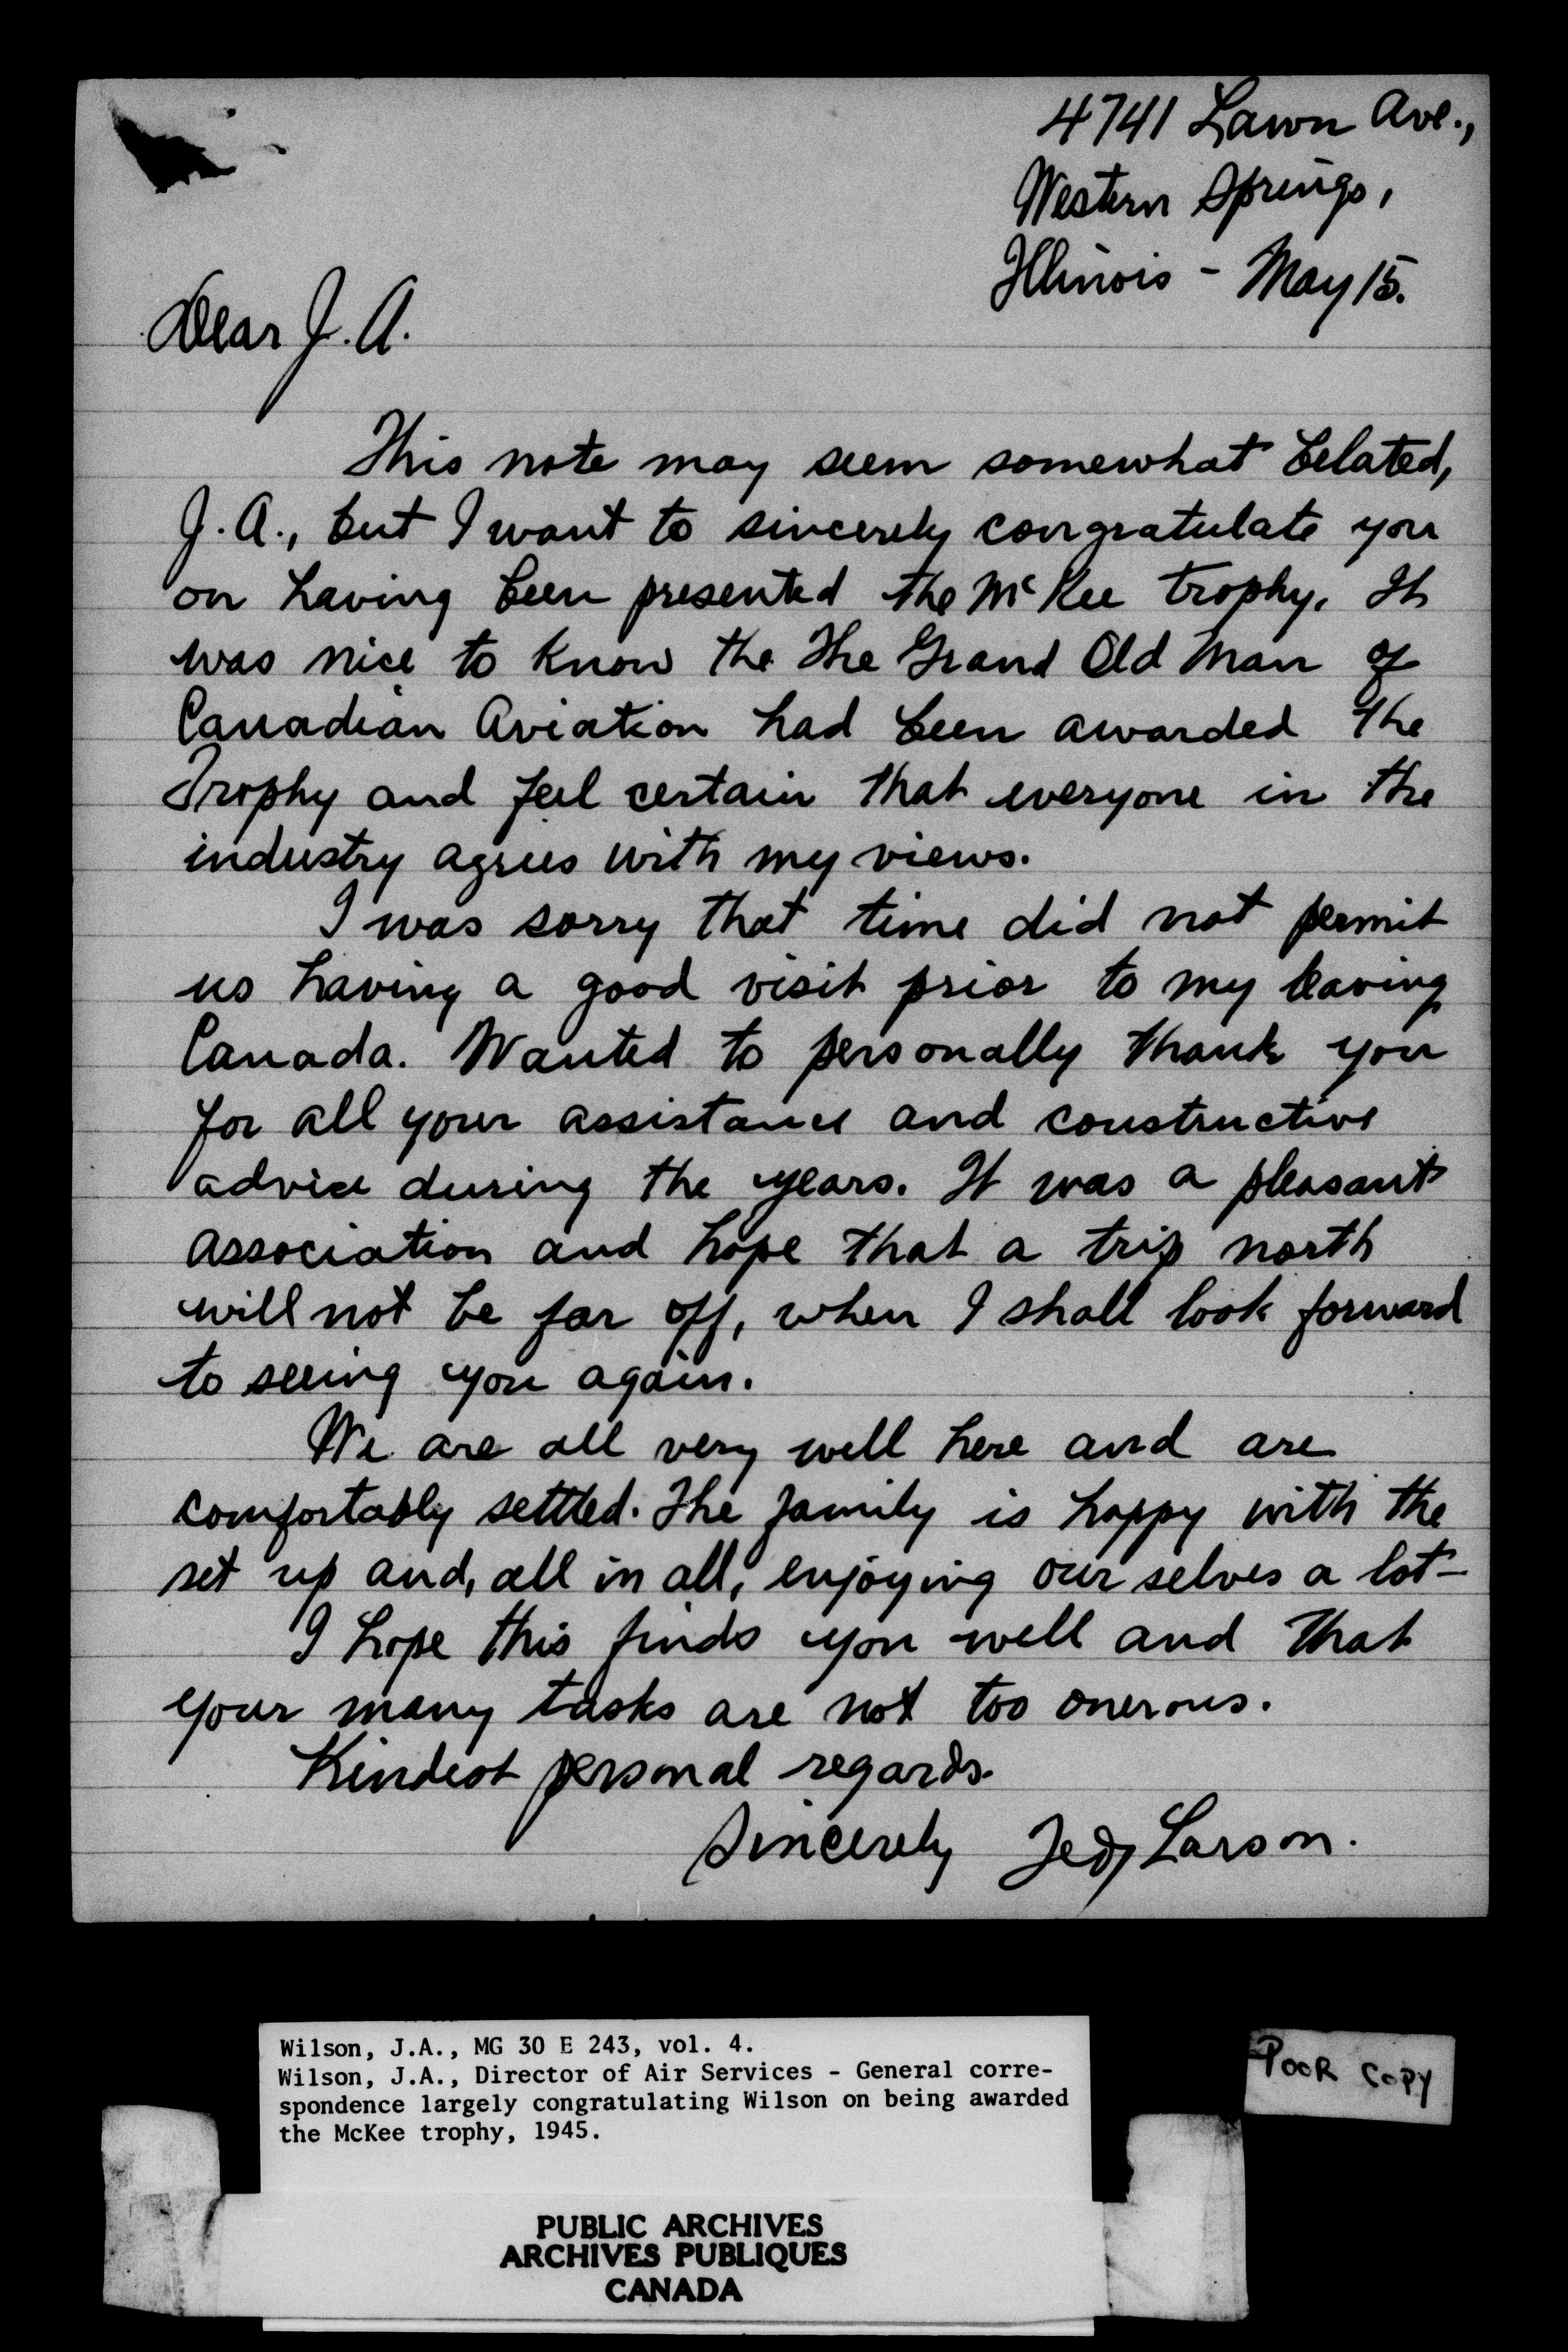 4741 Lawn Ave.,
Western Springs,
Illinois - May 15.
Dear J. A.
This note may seem somewhat belated,
J. A., but I want to sincerely congratulate you
on having been presented the McKee trophy. It
was nice to know the The Grand Old Man of
Canadian Aviation had been awarded the
Trophy and feel certain that everyone in the
industry agrees with my views.
I was sorry that time did not permit
us having a good visit prior to my leaving
Canada. Wanted to personally thank you
for all your assistance and constructive
advice during the years. It was a pleasant
association and hope that a trip north
will not be far off, when I shall look forward
to seeing you again.
We are all very well here and are
comfortably settled. The family is happy with the
set up and, all in all, enjoying our selves a lot -
I hope this finds you well and that
your many tasks are not too onerous.
Kindest personal regards.
Sincerely Larson.
Wilson, J.A., MG 30 E 243, vol. 4.
Wilson, J.A., Director of Air Services - General corre-
spondence largely congratulating Wilson on being awarded
the McKee trophy, 1945.
POOR COPY
PUBLIC ARCHIVES
ARCHIVES PUBLIQUES
CANADA